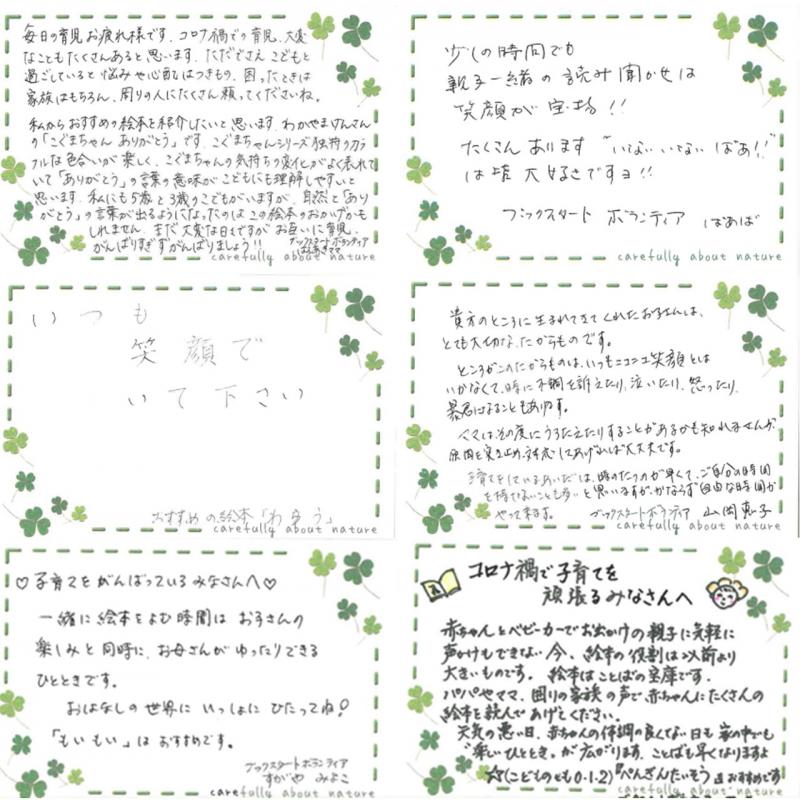 毎日の育児お疲れ様です。コロナ禍での育児、大変
なこともたくさんあると思います。ただでさえこどもと
過ごしていると悩みや心配はつきもの。困ったときは
家族はもちろん、周りの人にたくさん頼ってくださいね。
私からおすすめの絵本を紹介したいと思います。わかやまけんさん
の「こぐまちゃん ありがとう」です。こぐまちゃんシリーズ独特のカラ
フルな色合いが楽しく、こぐまちゃんの気持ちの変化がよく表れて
いて「ありがとう」の言葉の意味がこどもにも理解しやすいと
思います。私にも5歳と3歳のこどもがいますが、自然と「あり
がとう」の言葉が出るようになったのはこの絵本のおかげかも
しれません。まだ大変な日々ですがお互いに育児、
がんばりすぎずがんばりましょう!!
ブックスタートボランティア
carefully about nature
少しの時間でも
親子一緒の読み聞かせは
笑顔が宝物!!
たくさんあります "いないいないばあ!!"
は皆大好きですヨ!!
ブックスタート ボランティア ばあば
carefully about nature
いつも
笑顔で
いて下さい
おすすめの絵本「わらう」
carefully about nature
貴方のところに生まれてきてくれたお子さんは、
とても大切なたからものです。
ところがこのたからものは、いつもニコニコ笑顔とは
いかなくて、時に不調を訴えたり、泣いたり、怒ったり、
暴君になることもあります。
ママは、その度にうろたえたりすることがあるかも知れませんが、
原因を突き止め、対応してあげれば大丈夫です。
子育てをしているあいだは、時のたつのが早くて、ご自分の時間
を持てないことも多いと思いますが、かならず自由な時間が
やって来ます。 ブックスタートボランティア 山岡恵子
carefully about nature
♡子育てをがんばっているみなさんへ♡
一緒に絵本をよむ時間はお子さんの
楽しみと同時に、お母さんがゆったりできる
ひとときです。
おはなしの世界にいっしょにひたってね!
「もいもい」はおすすめです。
ブックスタートボランティア
すがや みよこ
carefully about nature
コロナ禍で子育てを
頑張るみなさんへ
赤ちゃんとベビーカーでお出かけの親子に気軽に
声かけもできない今、絵本の役割は以前より
大きいものです。絵本はことばの宝庫です。
パパやママ、周りの家族の声で赤ちゃんにたくさんの
絵本を読んであげてください。
天気の悪い日、赤ちゃんの体調の良くない日も家の中でも
"楽しいひととき"が広がります。ことばも早くなりますよ
☆(こどものとも0.1.2)『ぺんぎんたいそう』はおすすめです
carefully about nature